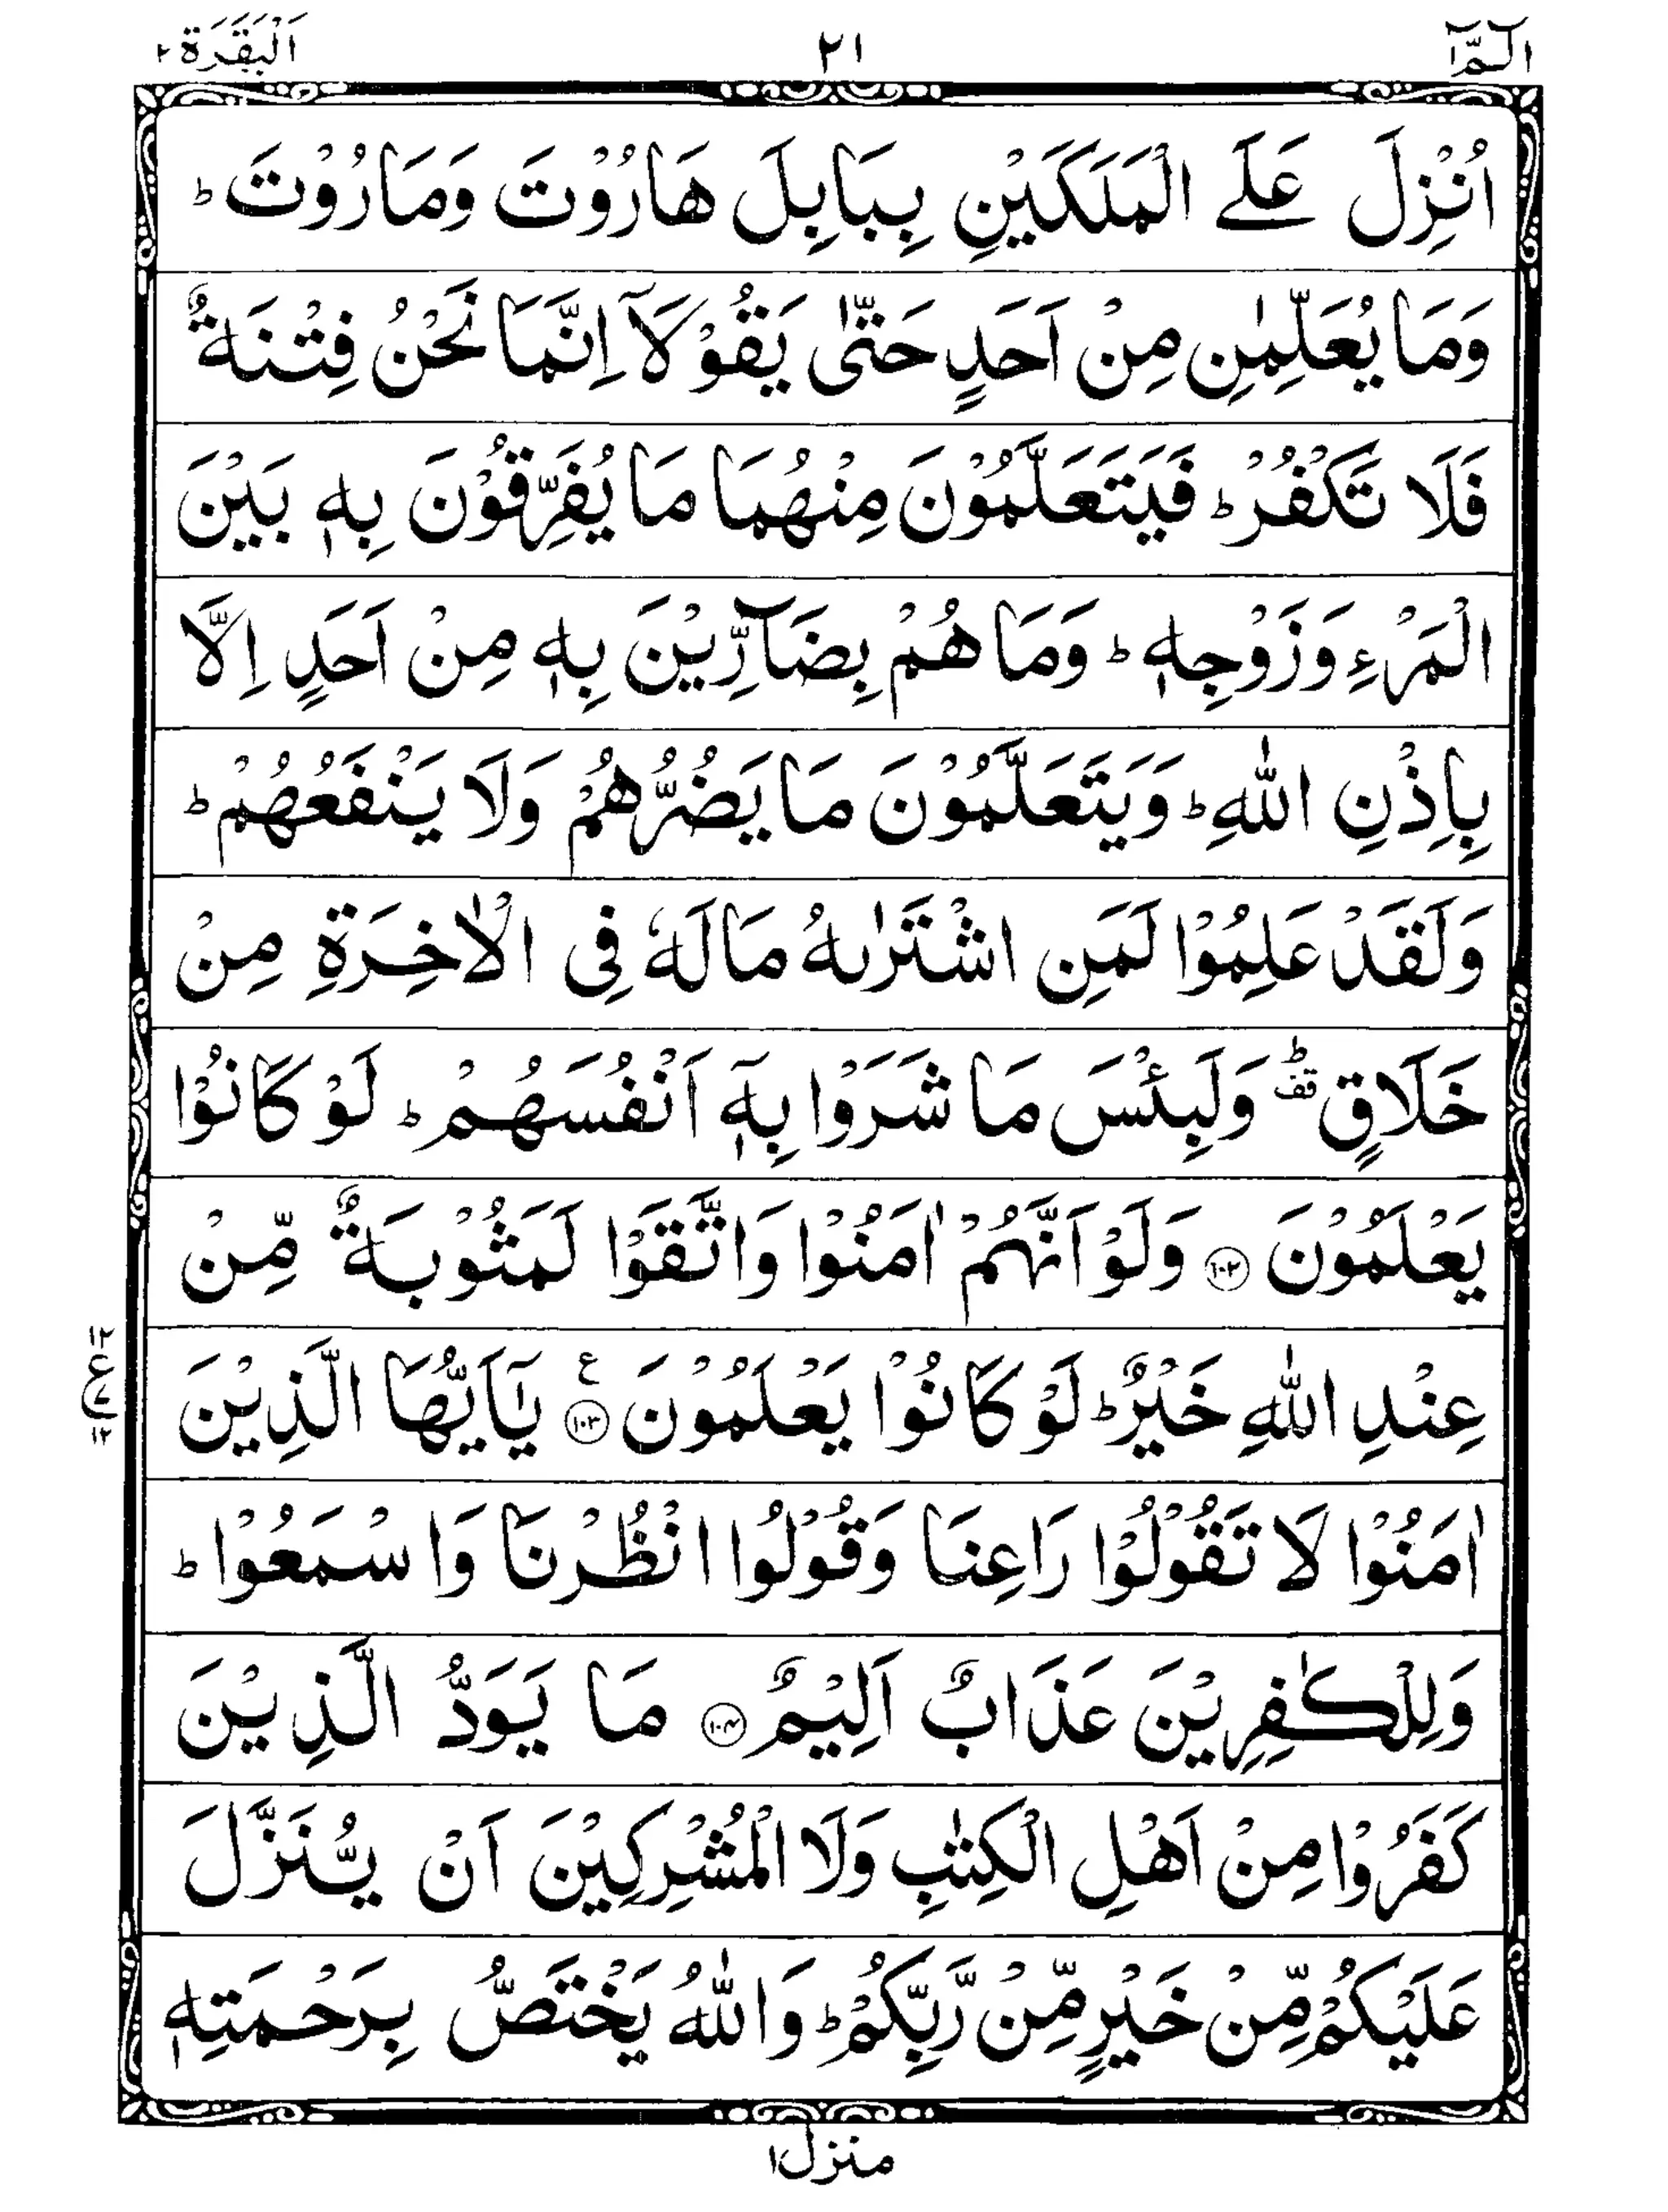 الٓمّٓ ١ ٢١ اَلْبَقَرَة ٢
اُنْزِلَ عَلَى الْمَلَكَيْنِ بِبَابِلَ هَارُوْتَ وَمَارُوْتَ ؕ
وَمَا يُعَلِّمٰنِ مِنْ اَحَدٍ حَتّٰى يَقُوْلَاۤ اِنَّمَا نَحْنُ فِتْنَةٌ
فَلَا تَكْفُرْ ؕ فَيَتَعَلَّمُوْنَ مِنْهُمَا مَا يُفَرِّقُوْنَ بِهٖ بَيْنَ
الْمَرْءِ وَزَوْجِهٖ ؕ وَمَا هُمْ بِضَآرِّيْنَ بِهٖ مِنْ اَحَدٍ اِلَّا
بِاِذْنِ اللّٰهِ ؕ وَيَتَعَلَّمُوْنَ مَا يَضُرُّهُمْ وَلَا يَنْفَعُهُمْ ؕ
وَلَقَدْ عَلِمُوْا لَمَنِ اشْتَرٰىهُ مَا لَهٗ فِى الْاٰخِرَةِ مِنْ
خَلَاقٍ ؕ قف وَلَبِئْسَ مَا شَرَوْا بِهٖۤ اَنْفُسَهُمْ ؕ لَوْ كَانُوْا
يَعْلَمُوْنَ ١٠٢ وَلَوْ اَنَّهُمْ اٰمَنُوْا وَاتَّقَوْا لَمَثُوْبَةٌ مِّنْ
عِنْدِ اللّٰهِ خَيْرٌ ؕ لَوْ كَانُوْا يَعْلَمُوْنَ ١٠٣ ع يٰۤاَيُّهَا الَّذِيْنَ
١٢ ع ٧ ١٢
اٰمَنُوْا لَا تَقُوْلُوْا رَاعِنَا وَقُوْلُوا انْظُرْنَا وَاسْمَعُوْا ؕ
وَلِلْكٰفِرِيْنَ عَذَابٌ اَلِيْمٌ ١٠٤ مَا يَوَدُّ الَّذِيْنَ
كَفَرُوْا مِنْ اَهْلِ الْكِتٰبِ وَلَا الْمُشْرِكِيْنَ اَنْ يُّنَزَّلَ
عَلَيْكُمْ مِّنْ خَيْرٍ مِّنْ رَّبِّكُمْ ؕ وَاللّٰهُ يَخْتَصُّ بِرَحْمَتِهٖ
منزل ١